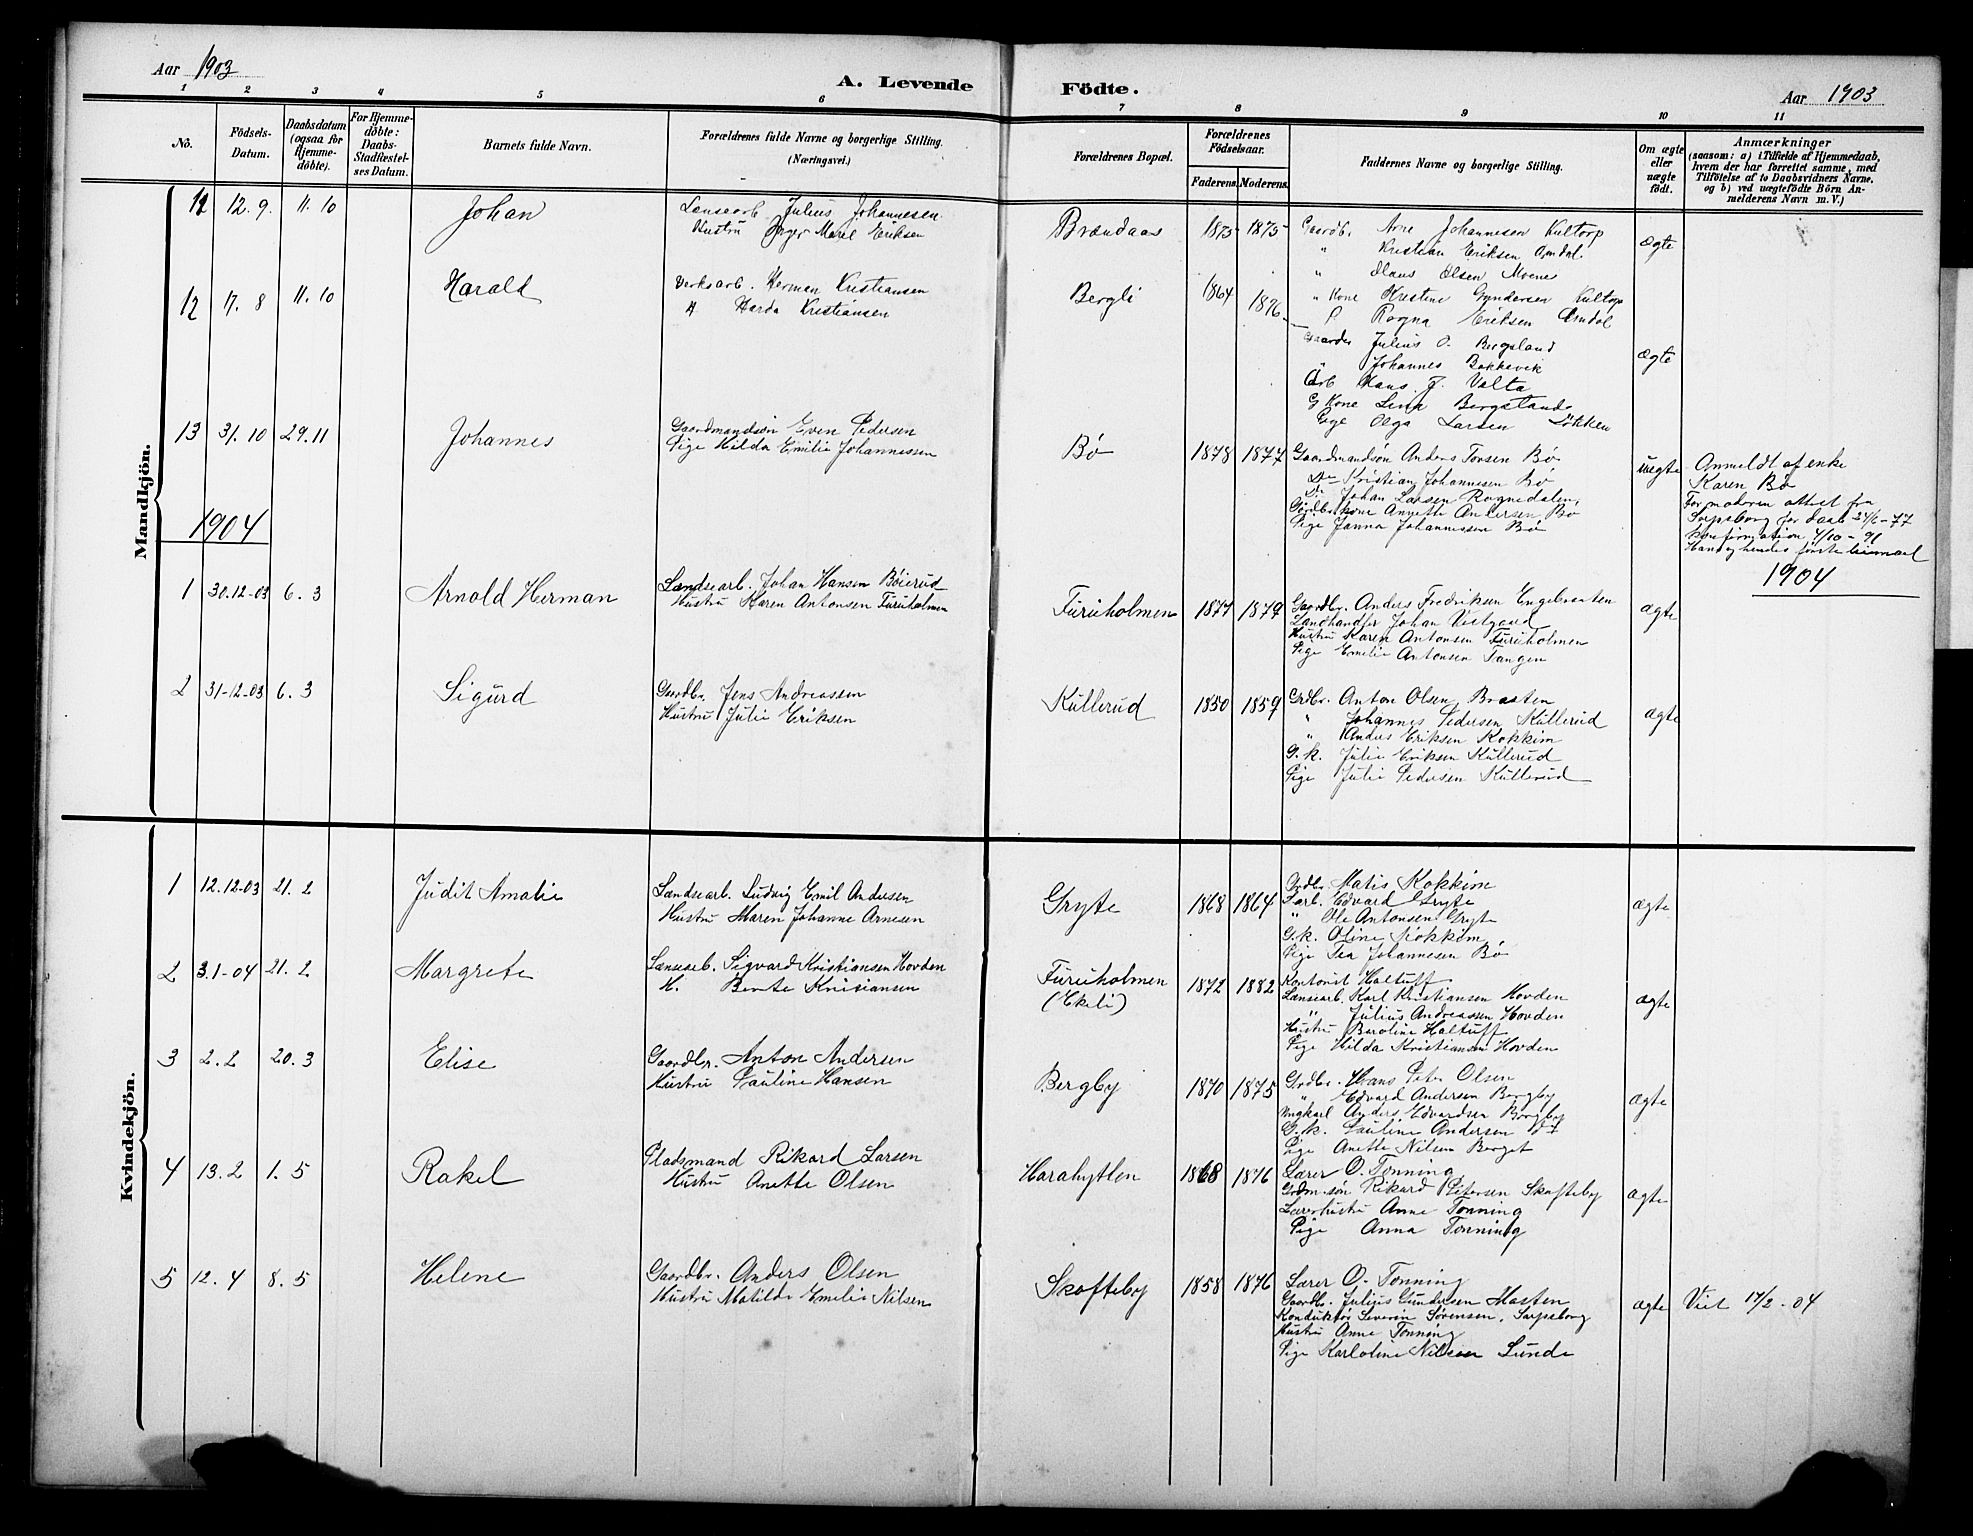 Aar 1903
A. Levende Födte.
Aar 1903
1 2 3 4 5 6 7 8 9 10 11
No.
Födsels-Datum.
Daabsdatum (ogsaa for Hjemme-döbte).
For Hjemme-döbte: Daabs-Stadfæstel-ses Datum.
Barnets fulde Navn.
Forældrenes fulde Navne og borgerlige Stilling. (Næringsvei.)
Forældrenes Bopæl.
Forældrenes Födselsaar.
Faderens. Moderens.
Faddernes Navne og borgerlige Stilling.
Om ægte eller uægte födt.
Anmærkninger
(saasom: a) i Tilfælde af Hjemmedaab,
hvem der har forrettet samme, med
Tilföielse af to Daabsvidners Navne,
og b) ved uægtefödte Börn An-
melderens Navn m. V.)
Mandkjön.
11 12.9. 11.10 Johan
Lænsearb. Julius Johannesen
Hustru Inger Marie Eriksen
Brændaas 1875 1875
Gaardbr. Arne Johannesen Kultorp
" Kristian Eriksen Omdal
" Olaus Olsen Moene
" Kone Kristine Gundersen Kultorp
P Ragna Eriksen Omdal
ægte
12 17.8 11.10 Harald
Verksarb. Herman Kristiansen
H Harda Kristiansen
Bergli 1864 1876
Gaardbr Julius O. Bergsland
" Johannes Bakkevik
Arb Hans J. Valta
G Kone Lina Bergsland
Pige Olga Larsen Løkken
ægte
13 31.10 29.11 Johannes
Gaardmandsøn Even Pedersen
Pige Hilda Emilie Johannessen
Bö 1878 1877
Gaardmandsøn Anders Torsen Bö
Do Kristian Johannesen Bö
Do Johan Larsen Rognedalen,
Gårdbr.kone Annette Andersen Bö
Pige Janna Johannessen Bö
uægte
Anmeldt af enke
Karen Bö
For moderen attest fra
Sarpsborg for daab 24/6-77
konfirmation 4/10-91
Hans og hendes første leiermaal
1904
1904
1 30.12-03 6.3 Arnold Herman
Lændsearb. Johan Hansen Böierud
Hustru Karen Antonsen Furuholmen
Furuholmen 1877 1879
Gaardbr. Anders Fredriksen Engebraaten
Landhandler Johan Vestgaard
Hustru Karen Antonsen Furuholmen
Pige Emilie Antonsen Tangen
ægte
2 31-12-03 6.3 Sigurd
Gaardbr. Jens Andreassen
Hustru Julie Eriksen
Kullerud 1850 1859
Grdbr. Anton Olsen Braaten
" Johannes Pedersen Kullerud
" Anders Eriksen Kokkim
G.k. Julie Eriksen Kullerud
Pige Julie Pedersen Kullerud
ægte
Kvindekjön.
1 12.12-03 21.2 Judit Amalie
Lændsearb. Ludvig Emil Andersen
Hustru Maren Johanne Arnesen
Gryte 1868 1864
Grdbr. Matis Kokkim
Sarb. Edvard Gryte
" Ole Antonsen Gryte
G.k. Oline Kokkim
Pige Tea Johannesen Bö
ægte
2 3.1-04 21.2 Margrete
Lænseb. Sigvard Kristiansen Hovden
H. Bente Kristiansen
Furuholmen
(Ekeli) 1872 1882
Kontorist Haltuff
Lænsearb. Karl Kristiansen Hovden
" Julius Andreassen Hovden
Hustru Baroline Haltuff
Pige Hilda Kristiansen Hovden
ægte
3 2.2 20.3 Elise
Gaardbr. Anton Andersen
Hustru Pauline Hansen
Bergby 1870 1875
Grdbr. Hans Peter Olsen
" Edvard Andersen Bergby
Ungkarl Anders Edvardsen Bergby
G.k. Pauline Andersen
Pige Anette Nilsen Berget
ægte
4 13.2 1.5 Rakel
Pladsmand Rikard Larsen
Hustru Anette Olsen
Harahytten 1868 1876
Lærer O. Tonning
Grdm.søn Rikard Petersen Skofteby
Lærerhustru Anne Tonning
Pige Anna Tonning
ægte
5 12.4 8.5 Helene
Gaardbr. Anders Olsen
Hustru Matilde Emelie Nilsen
Skofteby 1858 1876
Lærer O. Tonning
Gaardbr. Julius Gundersen Hasten
Konduktör Severin Sørensen, Sarpsborg
Hustru Anne Tonning
Pige Karloline Nilsen Lunde
ægte
Viet 17/2-04